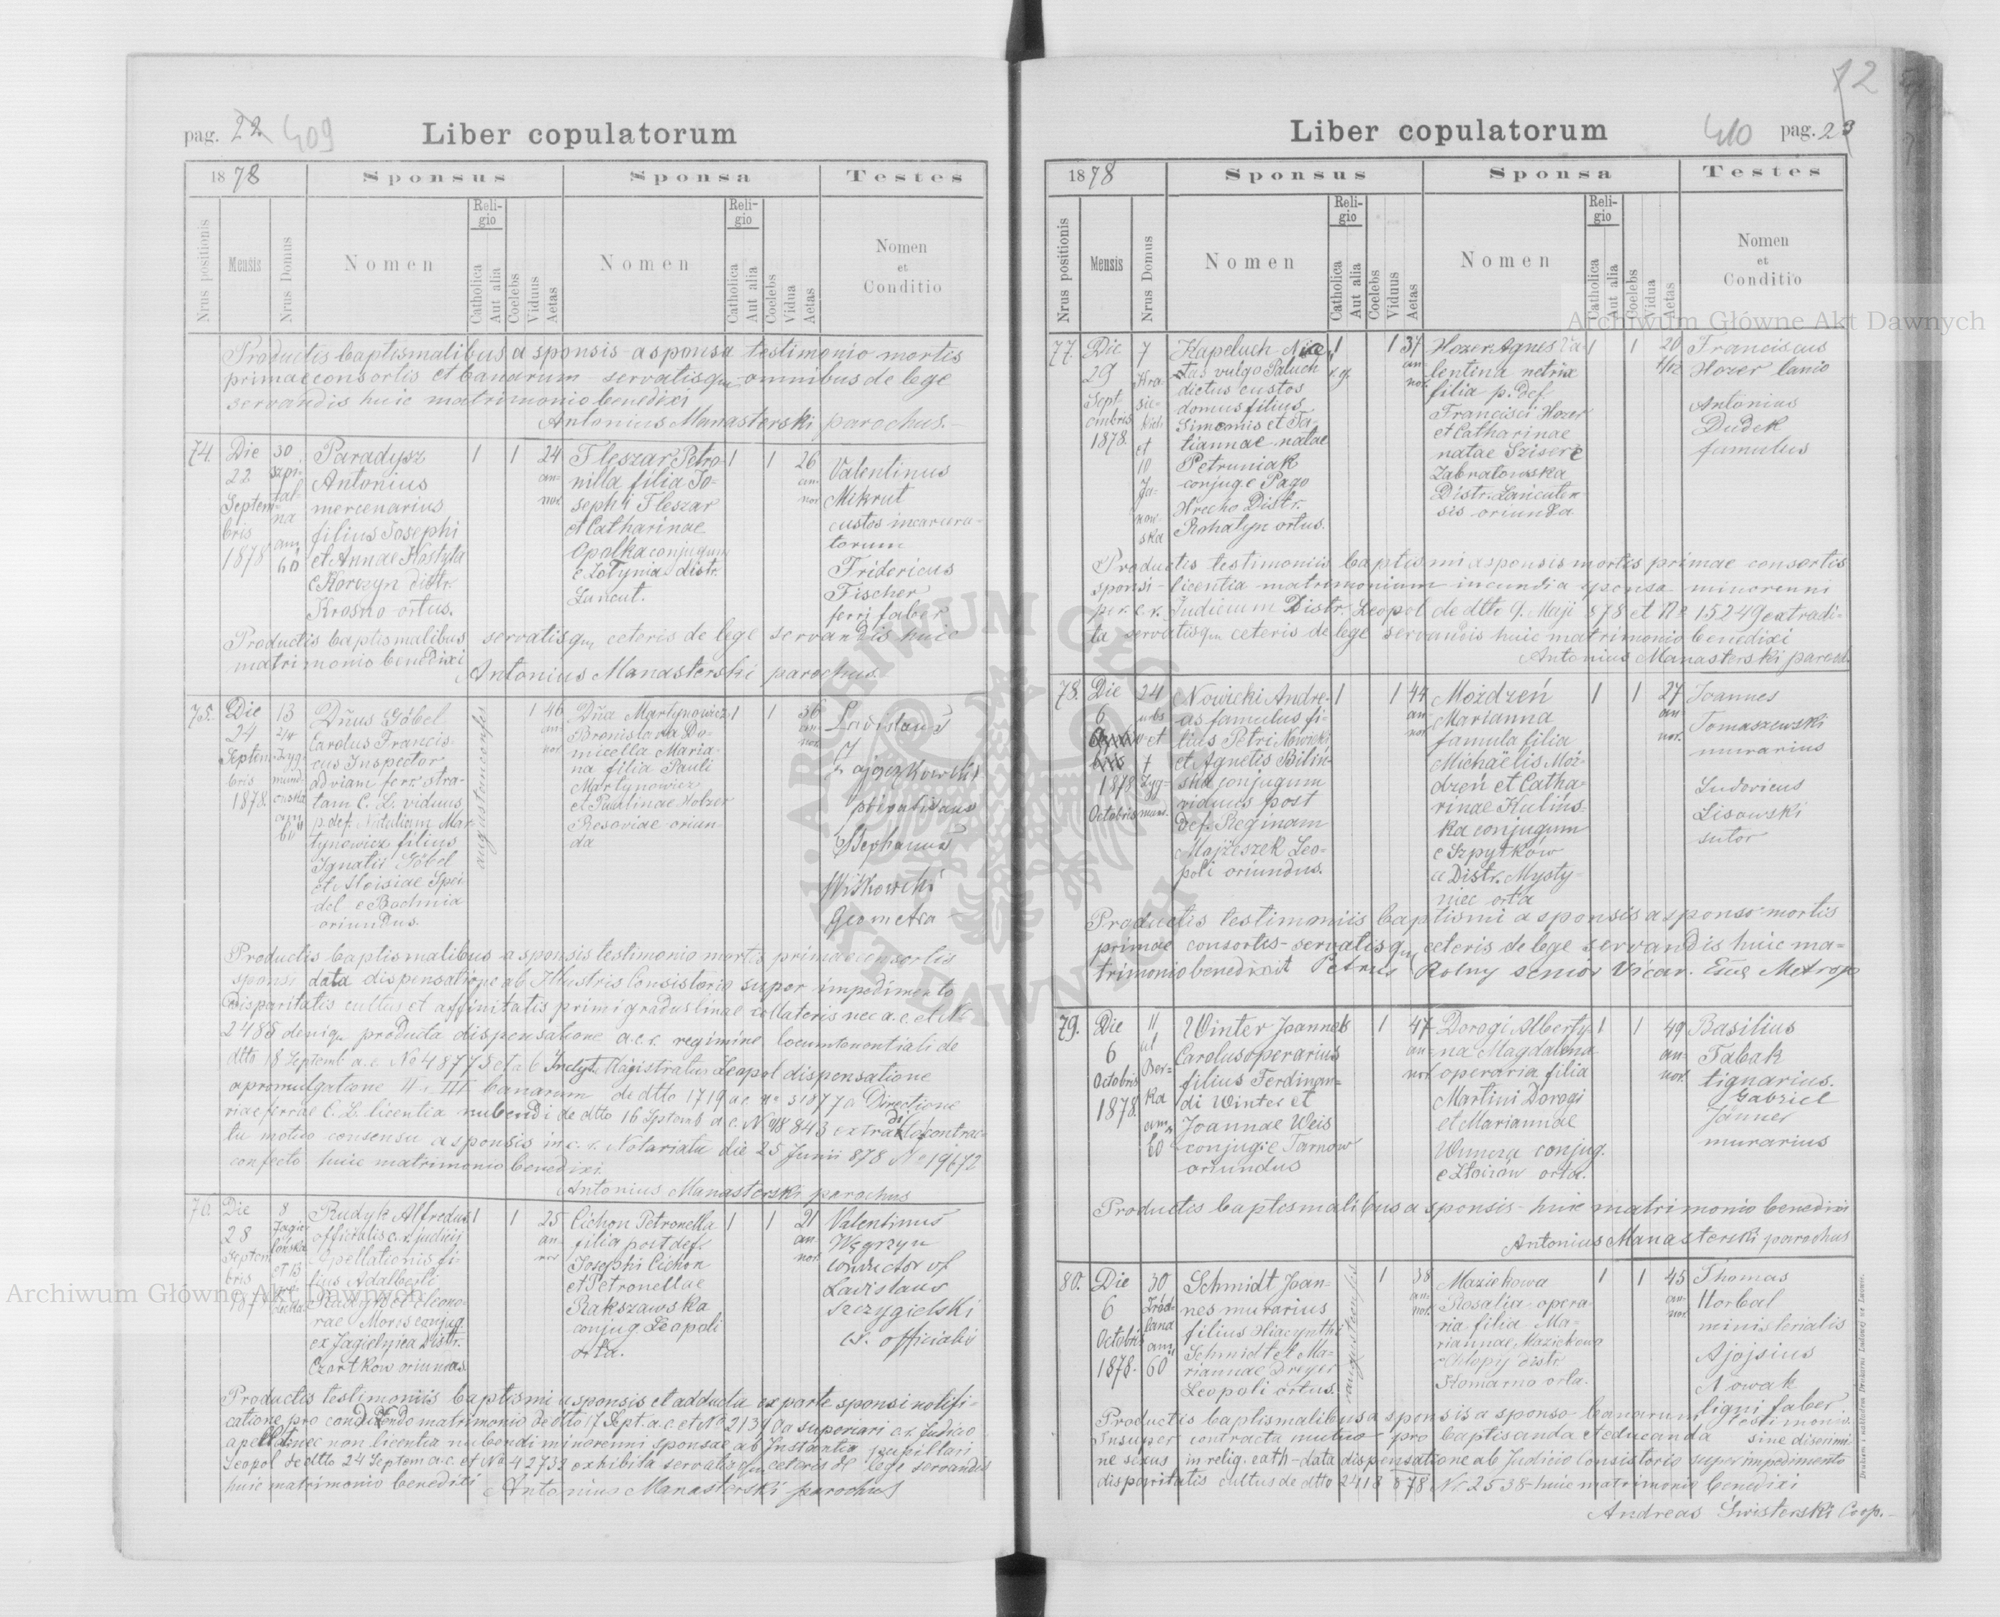 pag. 22 409
Liber copulatorum
1878 Sponsus Sponsa Testes
Nrus positionis
Mensis
Nrus Domus
Nomen
Religio
Catholica
Aut alia
Coelebs
Viduus
Aetas
Nomen
Religio
Catholica
Aut alia
Coelebs
Vidua
Aetas
Nomen
et
Conditio
Productis baptismalibus a sponsis a sponsa testimonio mortis
primae consortis et banorum servatisqu omnibus de lege
servandis huic matrimonio benedixi
Antonius Manasterski parochus.
74.
Die
22
Septem
bris
1878
30
am
60
Paradysz
Antonius
mercenarius
filius Josephi
et Annae Kostyła
e Korczyn distr.
Krosno ortus.
1 1 24
an-
nor
Fleszar Petro-
nilla filia Jo-
sephi Fleszar
et Catharinae
Opałka conjugum
e Żołynia distr.
Łancut.
1 1 26
an-
nor
Valentinus
Mikrut
custos incarcera-
torum
Fridericus
Fischer
ferri faber
Productis baptismalibus servatisqu ceteris de lege servandis huic
matrimonio benedixi
Antonius Manasterski parochus.
75.
Die
24
Septem
bris
1878.
13
Dnus Göbel
Carolus Francis-
cus Inspector
ad viam ferr. stra-
tam C. L. viduus
p. def. Nataliam Mar-
tynowicz filius
Ignatii Göbel
et Aloisiae Spei
del e Boemia
oriundus.
1 46
Dna Martynowicz
Bronislava Do-
micella Maria-
na filia Pauli
Martynowicz
et Paulinae Holzer
Resoviae oriun-
da
1 1 36
Ladislaus
Zajączkowski
privatisans
Stephanus
Witkowski
Geometra
Productis baptismalibus a sponsis testimonio mortis primae consortis
sponsi data dispensatione ab Illustris Consistorio super impedimento
disparitatis cultus et affinitatis primi gradus linae collateris nec a. c. et No
2485 deniqu producta dispensatione a c. r. regimine locumtenentiali de
dto 18 Septemb a. c. No 48775 et ab Inclyt. Magistratus Leopol dispensatione
a promulgatione II. III banorum de dto 1719 a c No 51077 a Directione
riae ferrae C. L. licentia nubendi de dto 16 Septemb a. c. N 843 extradita contrac-
tu mutuo consensu a sponsis in c. r. Notariatu die 25 Junii 878 No 19672
confecto huic matrimonio benedixi.
Antonius Manasterski parochus
76
Die
28
Septem
bris
187
8
Jagie-
lońska
et 13
Rudyk Alfredus
officialis c. r. judicii
apellationis fi-
lius Adalberti
Rudyk et Eleono-
rae Moris conjug.
ex Jagielnica Distr.
Czortkow oriundus
1 1 25
an-
nor
Cichon Petronella
filia post def.
Josephi Cichon
et Petronellae
Rakszawska
conjug. Leopoli
orta.
1 1 21
an-
nor
Valentinus
Węgrzyn
conductor vf
Ladislaus
Szczygielski
cr. officialis
Productis testimoniis baptismi a sponsis et adducta ex parte sponsi notifi-
catione pro condicendo matrimonio de dto 17 Sept. a. c. et No 21390 a superiori c. r. Judicio
apellat. nec non licentia nubendi minorenni sponsae ab Instantia pupillari
Leopol de dto 24 Septem a. c. et No 42732 exhibita servatisqu ceteris de lege servandis
huic matrimonio benedixi Antonius Manasterski parochus
12
Liber copulatorum
410 pag. 23
1878 Sponsus Sponsa Testes
Nrus positionis
Mensis
Nrus Domus
Nomen
Religio
Catholica
Aut alia
Coelebs
Viduus
Aetas
Nomen
Religio
Catholica
Aut alia
Coelebs
Vidua
Aetas
Nomen
et
Conditio
77.
Die
29
Sept
embris
1878.
7
Kra
sic-
kich
et
10
Ja-
now-
ska
Kapeluch Nice-
tas vulgo Paluch
dictus custos
domus filius
Simeonis et Ta-
tiannae natae
Petruniak
conjug. e Pago
Hrecho Distr.
Rohatyn ortus.
1 r. g. 1 37
an-
nor.
Hozer Agnes Va-
lentina netrix
filia p. def
Francisci Hozer
et Catharinae
natae Sziser e
Zabratowska
Distr. Lańcuten-
sis oriunda
1 1 20
Franciscus
Hozer lanio
Antonius
Dudek
famulus
Productis testimoniis baptismi a sponsis mortis primae consortis
sponsi licentia matrimonium ineundi a sponsa minorenni
per c. r. Judicium Distr. Leopol de dto 9. Maji 878 et No 15249 extradi-
ta servatisqu ceteris de lege servandis huic matrimonio benedixi
Antonius Manasterski paroch.
78.
Die
6
1878
Octobris
24
urbs
et
7
Zyg-
mun.
Nowicki Andre-
as famulus fi-
lius Petri Nowicki
et Agnetis Bilin-
ska conjugum
viduus post
Def. Reginam
Majżeszek Leo-
poli oriundus.
1 1 44
an-
nor
Możdzeń
Marianna
famula filia
Michaelis Moż-
dzeń et Catha-
rinae Kulińs-
ka conjugum
e Szpytków
a Distr. Mysty-
niec orta
1 1 27
an-
nor.
Joannes
Tomaszewski
murarius
Ludovicus
Lisowski
sutor
Productis testimoniis baptismi a sponsis a sponso mortis
primae consortis servatisqu ceteris de lege servandis huic ma-
trimonio benedixit Petrus Rolny senior Vicar. Eccl. Metrop
79.
Die
6
Octobris
1878.
11
ul
Ber-
ka
am
60
Winter Joannes
Carolus operarius
filius Ferdinan-
di Winter et
Joannae Weis
conjug. e Tarnow
oriundus
1 47
an-
nor
Dorogi Alberty-
na Magdalena
operaria filia
Martini Dorogi
et Mariannae
Wunoza conjug.
e Złoczów orta.
1 1 49
an-
nor.
Basilius
Tabak
tignarius.
Gabriel
Janner
murarius
Productis baptismalibus a sponsis huic matrimonio benedixi
Antonius Manasterski parochus
80.
Die
6
Octobris
1878.
30
Żród-
lana
am
60
Schmidt Joan-
nes murarius
filius Hiacynthi
Schmidt et Ma-
riannae Dreyer
Leopoli ortus.
1 38
an-
nor
Maziekowa
Rosalia opera-
ria filia Ma-
riannae Maziekowa
e Chłopy distr.
Komarno orta.
1 1 45
an-
nor
Thomas
Horbal
ministerialis
Alojsius
Nowak
ligni faber.
Productis baptismalibus a sponsis a sponso banorum testimonio.
Insuper contracta mutuo pro baptisanda et educanda sine discrimi-
ne sexus in relig. cath data dispensatione ab Judicio Consistorio super impedimento
disparitatis cultus de dto 2413 878 No 2538 huic matrimonio benedixi
Andreas Świsterski Coop.
Archiwum Główne Akt Dawnych
Archiwum Główne Akt Dawnych
ARCHIWUM GŁÓWNE AKT DAWNYCH